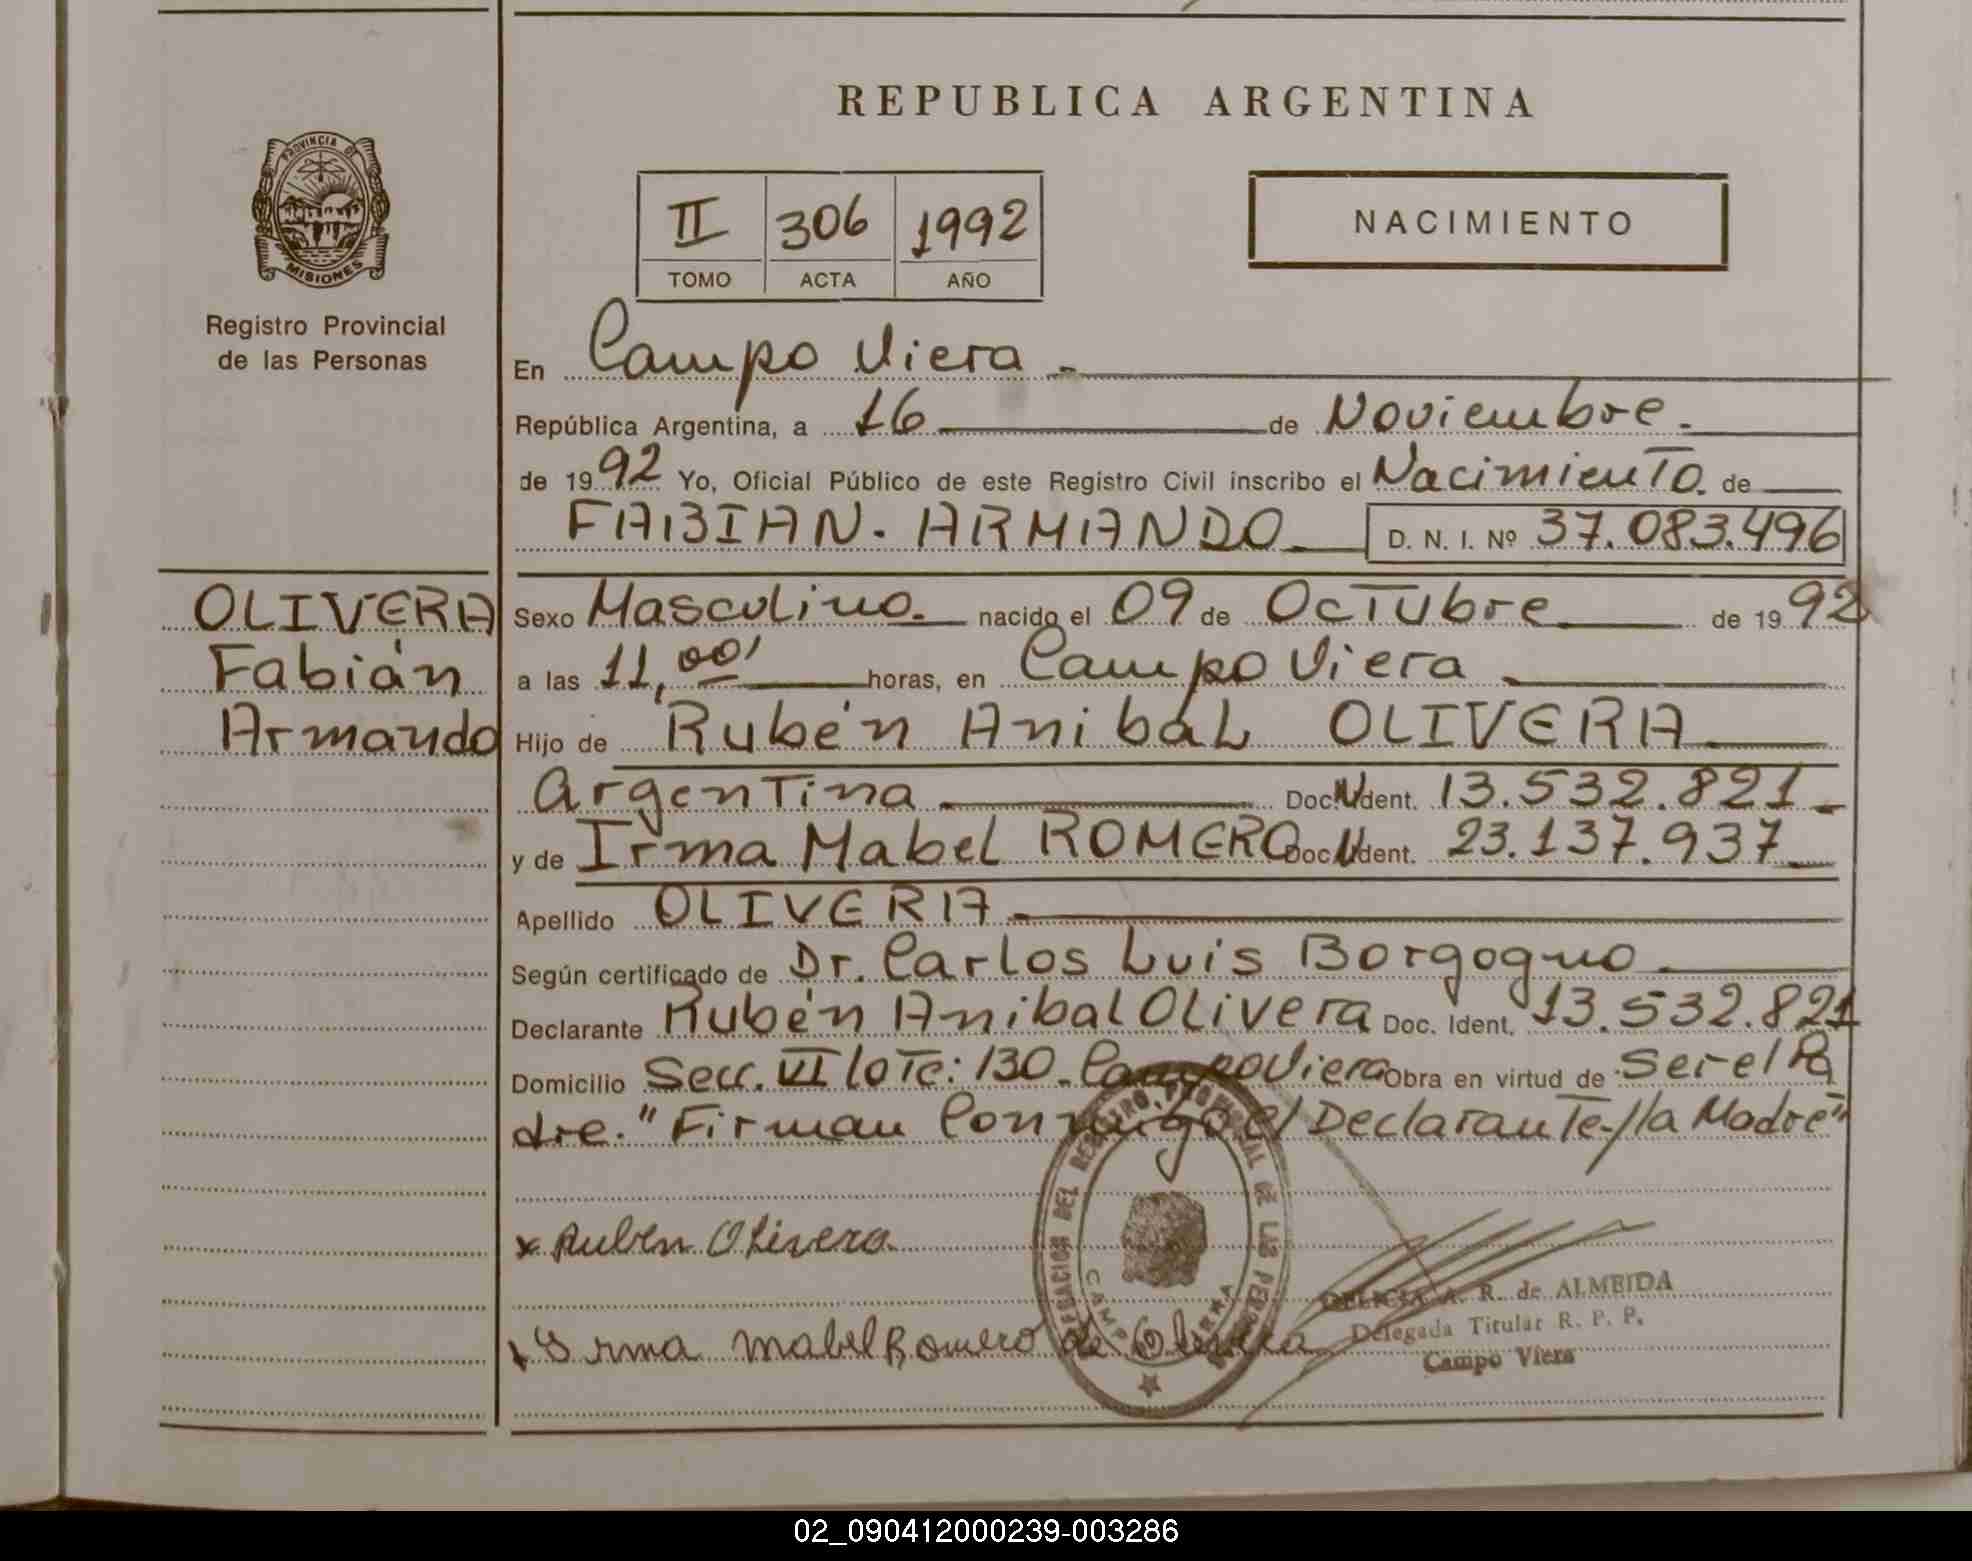 REPUBLICA ARGENTINA
PROVINCIA DE
MISIONES
Registro Provincial
de las Personas
II 306 1992
TOMO ACTA AÑO
NACIMIENTO
En Campo Viera.-
República Argentina, a 16 de Noviembre.
de 1992 Yo, Oficial Público de este Registro Civil inscribo el Nacimiento. de
FABIAN. ARMANDO D. N. I. Nº 37.083.496
OLIVERA
Fabián
Armando
Sexo Masculino. nacido el 09 de Octubre de 1992
a las 11,00' horas, en Campo Viera
Hijo de Rubén Anibal OLIVERA
Argentina Doc. N Ident. 13.532.821.-
y de Irma Mabel ROMERO Doc. N Ident. 23.137.937
Apellido OLIVERA
Según certificado de Dr. Carlos Luis Borgogno.
Declarante Rubén Anibal Olivera Doc. Ident. 13.532.821
Domicilio Secc. VI lote: 130. Campo Viera Obra en virtud de Ser el Pa
dre. "Firman Conmigo el Declarante-/la Madre"
x Ruben Olivera
x Irma Mabel Romero de Olivera
DELEGACION DEL REGISTRO PROVINCIAL DE LAS PERSONAS
CAMPO VIERA
DELICIA A. R. de ALMEIDA
Delegada Titular R. P. P.
Campo Viera
02_090412000239-003286